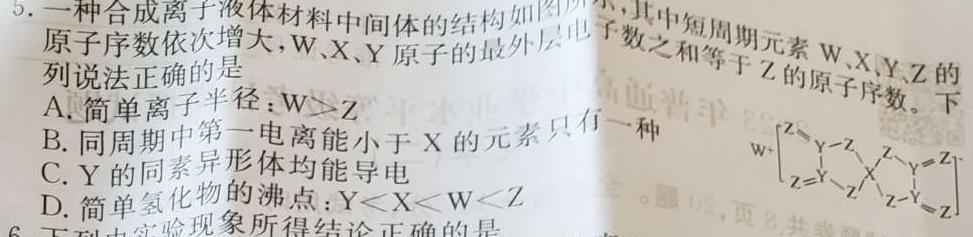 5. 一种合成离子液体材料中间体的结构如图所示,其中短周期元素 W、X、Y、Z 的
原子序数依次增大,W、X、Y 原子的最外层电子数之和等于 Z 的原子序数。下
列说法正确的是
A. 简单离子半径:W>Z
B. 同周期中第一电离能小于 X 的元素只有一种
C. Y 的同素异形体均能导电
D. 简单氢化物的沸点:Y<X<W<Z
W⁺ [Z Y Z Z Y Z X Z Y Z Z Y Z]⁻
6. 下列由实验现象所得结论正确的是